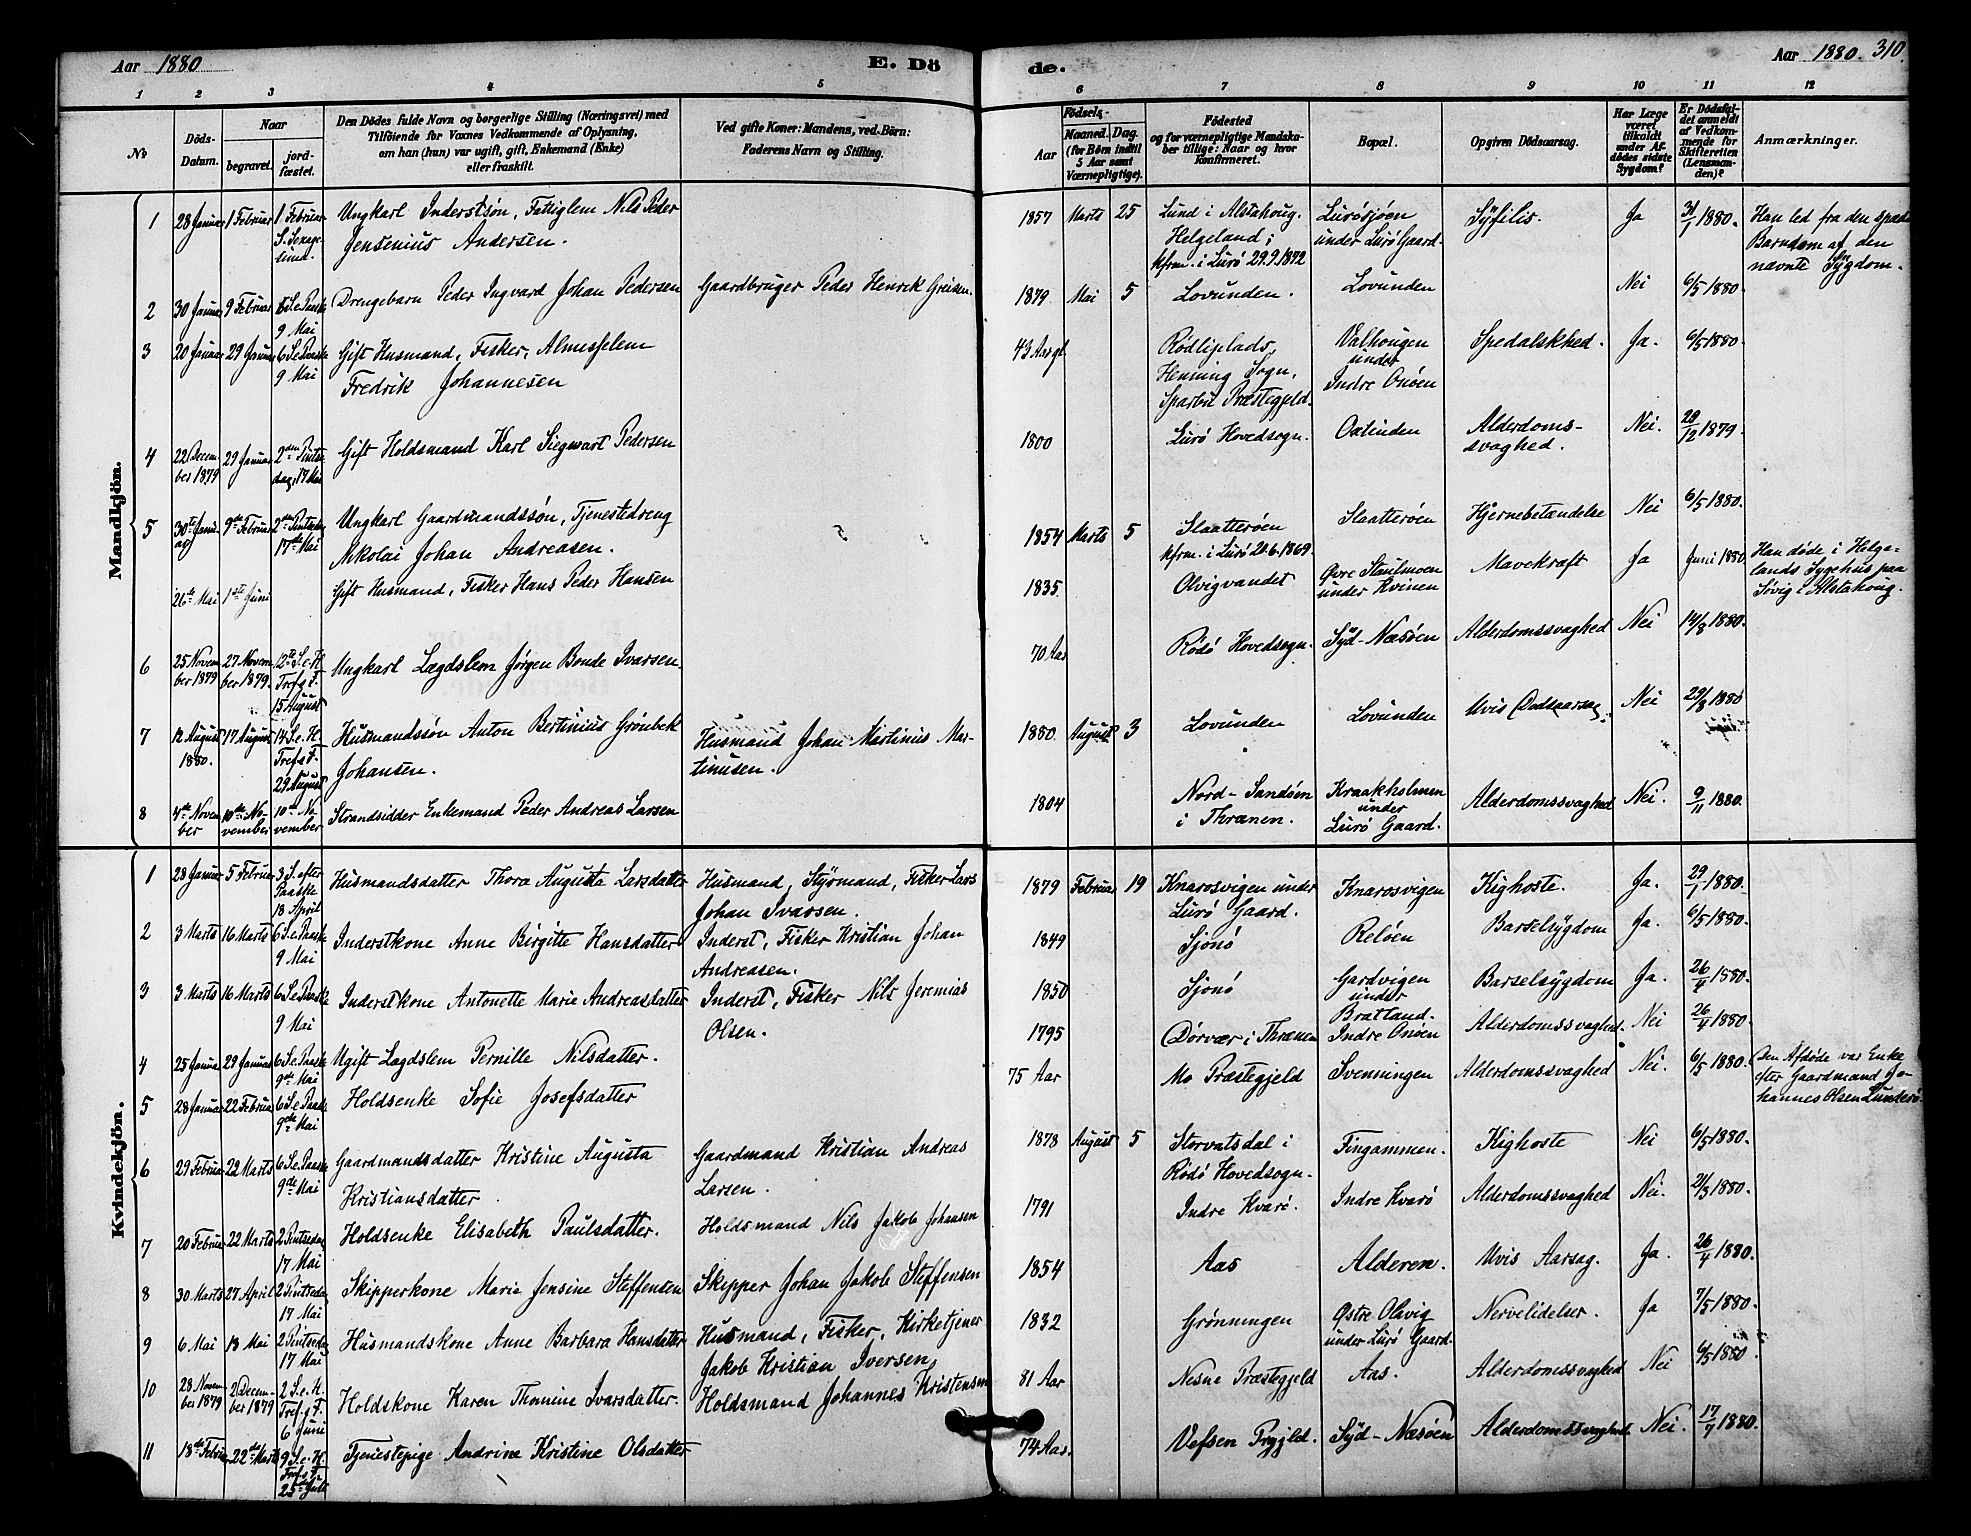 Aar 1880
E. Dö
de.
Aar 1880. 310.
1 2 3 4 5 6 7 8 9 10 11 12
No
Döds-
Datum.
Naar
begravet.
jord-
fæstet.
Den Dödes fulde Navn og borgerlige Stilling (Næringsvei) med
Tilföiende for Voxnes Vedkommende af Oplysning,
om han (hun) var ugift, gift, Enkemand (Enke)
eller fraskilt.
Ved gifte Koner: Mandens, ved Börn:
Faderens Navn og Stilling.
Födsels-
Aar
Maaned. Dag.
(for Børn indtil
5 Aar samt
Værnepligtige).
Födested
og for værnepligtige Mandska-
ber tillige: Naar og hvor
konfirmeret.
Bopæl.
Opgiven Dödsaarsag.
Har Læge
været
tilkaldt
under Af-
dödes sidste
Sygdom?
Er Dödsfal-
det anmeldt
af Vedkom-
mende for
Skifteretten
(Lensman-
den)?
Anmærkninger.
Mandkjön.
1 28 Januar 1 Februar 1 Februar Ungkarl Inderstsøn, Fattiglem Nils Peder 1857 Marts 25 Lund i Alstahoug. Lurösjøen Syfilis. Ja 31/1 1880. Han led fra den spæde
Jensenius Andersen. Helgeland; under Lurö Gaard. Barndom af den
kfrm. i Lurö 29.9.1872 nævnte Sygdom.
2 30 Januar 9 Februar 6 S. e. Paaske Drengebarn Peder Ingvard Johan Pedersen Gaardbruger Peder Henrik Greisen. 1879 Mai 5 Lovunden. Lovunden Nei 6/5 1880.
9 Mai
3 20 Januar 29 Januar 6 S. e. Paaske Gift Husmand, Fisker, Almesselem 43 Aar gl. Rödliplads, Valhougen Spedalskhed. Ja. 6/5 1880.
9 Mai Fredrik Johannesen Henning Sogn, under
Sparbu Præstegjeld. Indre Onöen
4 22 Decem- 29 Januar 2den Pintse Gift Holdsmand Karl Siegwart Pedersen 1800 Lurö Hovedsogn. Oxtinden Alderdoms- Nei. 28/12 1879.
ber 1879 dag, 17 Mai svaghed.
5 30te Janu- 9de Februar 2den Pintsedag Ungkarl Gaardmandssön, Tjenestedreng 1854 Marts 5 Slaatteröen Slaatteröen Hjernebetændelse Nei 6/5 1880.
ar 17de Mai Nikolai Johan Andreasen. kfrm. i Lurö 20.6.1869.
26de Mai 1ste Juni Gift Husmand, Fisker Hans Peder Hansen 1835 Olvigvandet Øvre Staulmoen Mavekræft Ja Juni 1880 Han døde i Helge-
under Kvinen lands Sygehus paa
Søvig i Alstahoug.
6 25 Novem- 27 Novem- 12te S. e. H. Ungkarl Lægdslem Jørgen Bonde Ivarsen. 70 Aar Rödö Hovedsogn. Syd-Næsöen Alderdomssvaghed Nei 14/8 1880.
ber 1879 ber 1879. Trefgs F.
15 August
7 12 August 17 August 14 S. e. H. Husmandssön Anton Bertinius Grönbek Husmand Johan Martinius Mar- 1880 August 3 Lovunden Lovunden Uvis Dødsaarsag. Nei 29/8 1880
1880. Trefs F. Johansen. tinusen.
29 August
8 4de Novem- 10de No- 10de No- Strandsidder Enkemand Peder Andreas Larsen 1804 Nord-Sandöen Kraakholmen Alderdomssvaghed Nei. 9/11 1880.
ber vember vember i Thrænen. under
Lurö Gaard.
Kvindekjön.
1 28 Januar 5 Februar 3 S. efter Husmandsdatter Thora Augusta Larsdatter Husmand, Styrmand, Fisker Lars 1879 Februar 19 Knarosvigen under Knarosvigen Kighoste. Ja. 29/1 1880.
Paaske Johan Ivarsen. Lurö Gaard.
18 April
2 3 Marts 16 Marts 6 S. e. Paaske Inderstkone Anne Birgitte Hansdatter Inderst, Fisker Kristian Johan 1849 Sjonö Relöen Barselsygdom Ja. 6/5 1880.
9 Mai Andreasen.
3 3 Marts 16 Marts 6 S. e. Paaske Inderstkone Antonette Marie Andreasdatter Inderst, Fisker Nils Jeremias 1850 Sjonö Gardvigen Barselsygdom Ja. 26/4 1880.
9 Mai Olsen. under
Bratland.
4 25 Januar 29 Januar 6 S. e. Paaske Ugift Lægdslem Pernille Nilsdatter. 1795 Dörvær i Thrænen Indre Onöen Alderdomssvaghed. Nei 26/4 1880
9de Mai
5 28 Januar 22 Februar 6 S. e. Paaske Holdsenke Sofie Josefsdatter 75 Aar Mo Præstegjeld Svenningen Alderdomssvaghed Nei. 6/5 1880. Den Afdöde var Enke
9de Mai efter Gaardmand Jo-
hannes Olsen Lunderö.
6 29 Februar 22 Marts 6 S. e. Paaske Gaardmandsdatter Kristine Augusta Gaardmand Kristian Andreas 1878 August 5 Storvatsdal i Fingammen. Kighoste Nei 6/5 1880.
9de Mai Kristiansdatter Larsen. Rödö Hovedsogn.
7 20 Februar 22 Marts 2 Pintsedag Holdsenke Elisabeth Paulsdatter. Holdsmand Nils Jakob Johansen 1791 Indre Kvarö. Indre Kvarö Alderdomssvaghed Nei. 21/3 1880.
17 Mai
8 30 Marts 27 April 2 Pintsedag Skipperkone Maria Jensine Steffensen Skipper Johan Jakob Steffensen 1854 Aas Alderen. Uvis Aarsag. Ja. 26/4 1880.
17 Mai
9 6 Mai 18 Mai 2 Pintsedag Husmandskone Anne Barbara Hansdatter Husmand, Fisker, Kirketjener 1832 Grönningen Østre Olavig Nervelidelser. Ja 7/5 1880.
17 Mai Jakob Kristian Iversen. under Lurö Gaard.
10 28 Novem- 2 Decem- 2 S. e. H. Holdskone Karen Thomine Ivarsdatter. Holdsmand Johannes Kristensen 81 Aar Nesne Præstegjeld Aas. Alderdomssvaghed Nei 6/5 1880.
ber 1879 ber 1879 Tref.g F.
6 Juni
11 18de Februar 22de Marts 9 S. e. H. Tjenestepige Andrine Kristine Olsdatter 74 Aar. Vefsen Prgjld. Syd-Næsöen Alderdomssvaghed. Nei. 17/7 1880.
Trefs F.
25de Juli